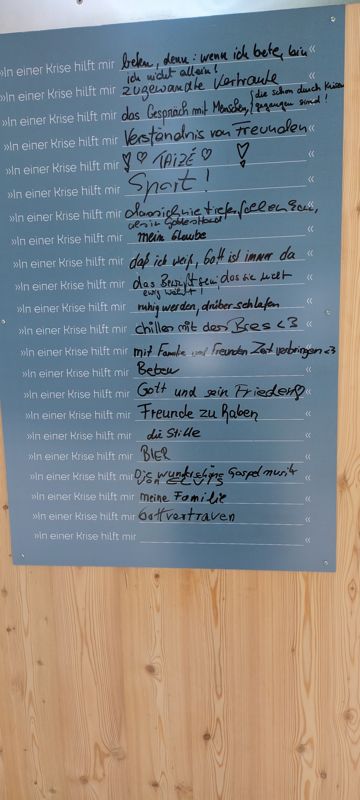 »In einer Krise hilft mir beten, denn: wenn ich bete, bin «
ich nicht allein!
»In einer Krise hilft mir zugewandte Vertraute «
»In einer Krise hilft mir das Gespräch mit Menschen, (die schon durch Krisen «
gegangen sind!
»In einer Krise hilft mir Verständnis von Freunden «
»In einer Krise hilft mir ♡ ♡ TAIZÉ ♡ ! «
»In einer Krise hilft mir Sport! «
»In einer Krise hilft mir dass ich nie tiefer fallen kann, «
als in Gottes Hand
»In einer Krise hilft mir mein Glaube «
»In einer Krise hilft mir daß ich weiß, Gott ist immer da «
»In einer Krise hilft mir das Bewußtsein das sie nicht «
ewig währt!
»In einer Krise hilft mir ruhig werden, drüber schlafen «
»In einer Krise hilft mir chillen mit den Bres <3 «
»In einer Krise hilft mir mit Familie und Freunden Zeit verbringen <3 «
»In einer Krise hilft mir Beten «
»In einer Krise hilft mir Gott und sein Frieden♡ «
»In einer Krise hilft mir Freunde zu haben «
»In einer Krise hilft mir die Stille «
»In einer Krise hilft mir BIER «
»In einer Krise hilft mir Die wunderschöne Gospelmusik «
von ELVIS
»In einer Krise hilft mir meine Familie «
»In einer Krise hilft mir Gottvertrauen «
»In einer Krise hilft mir «